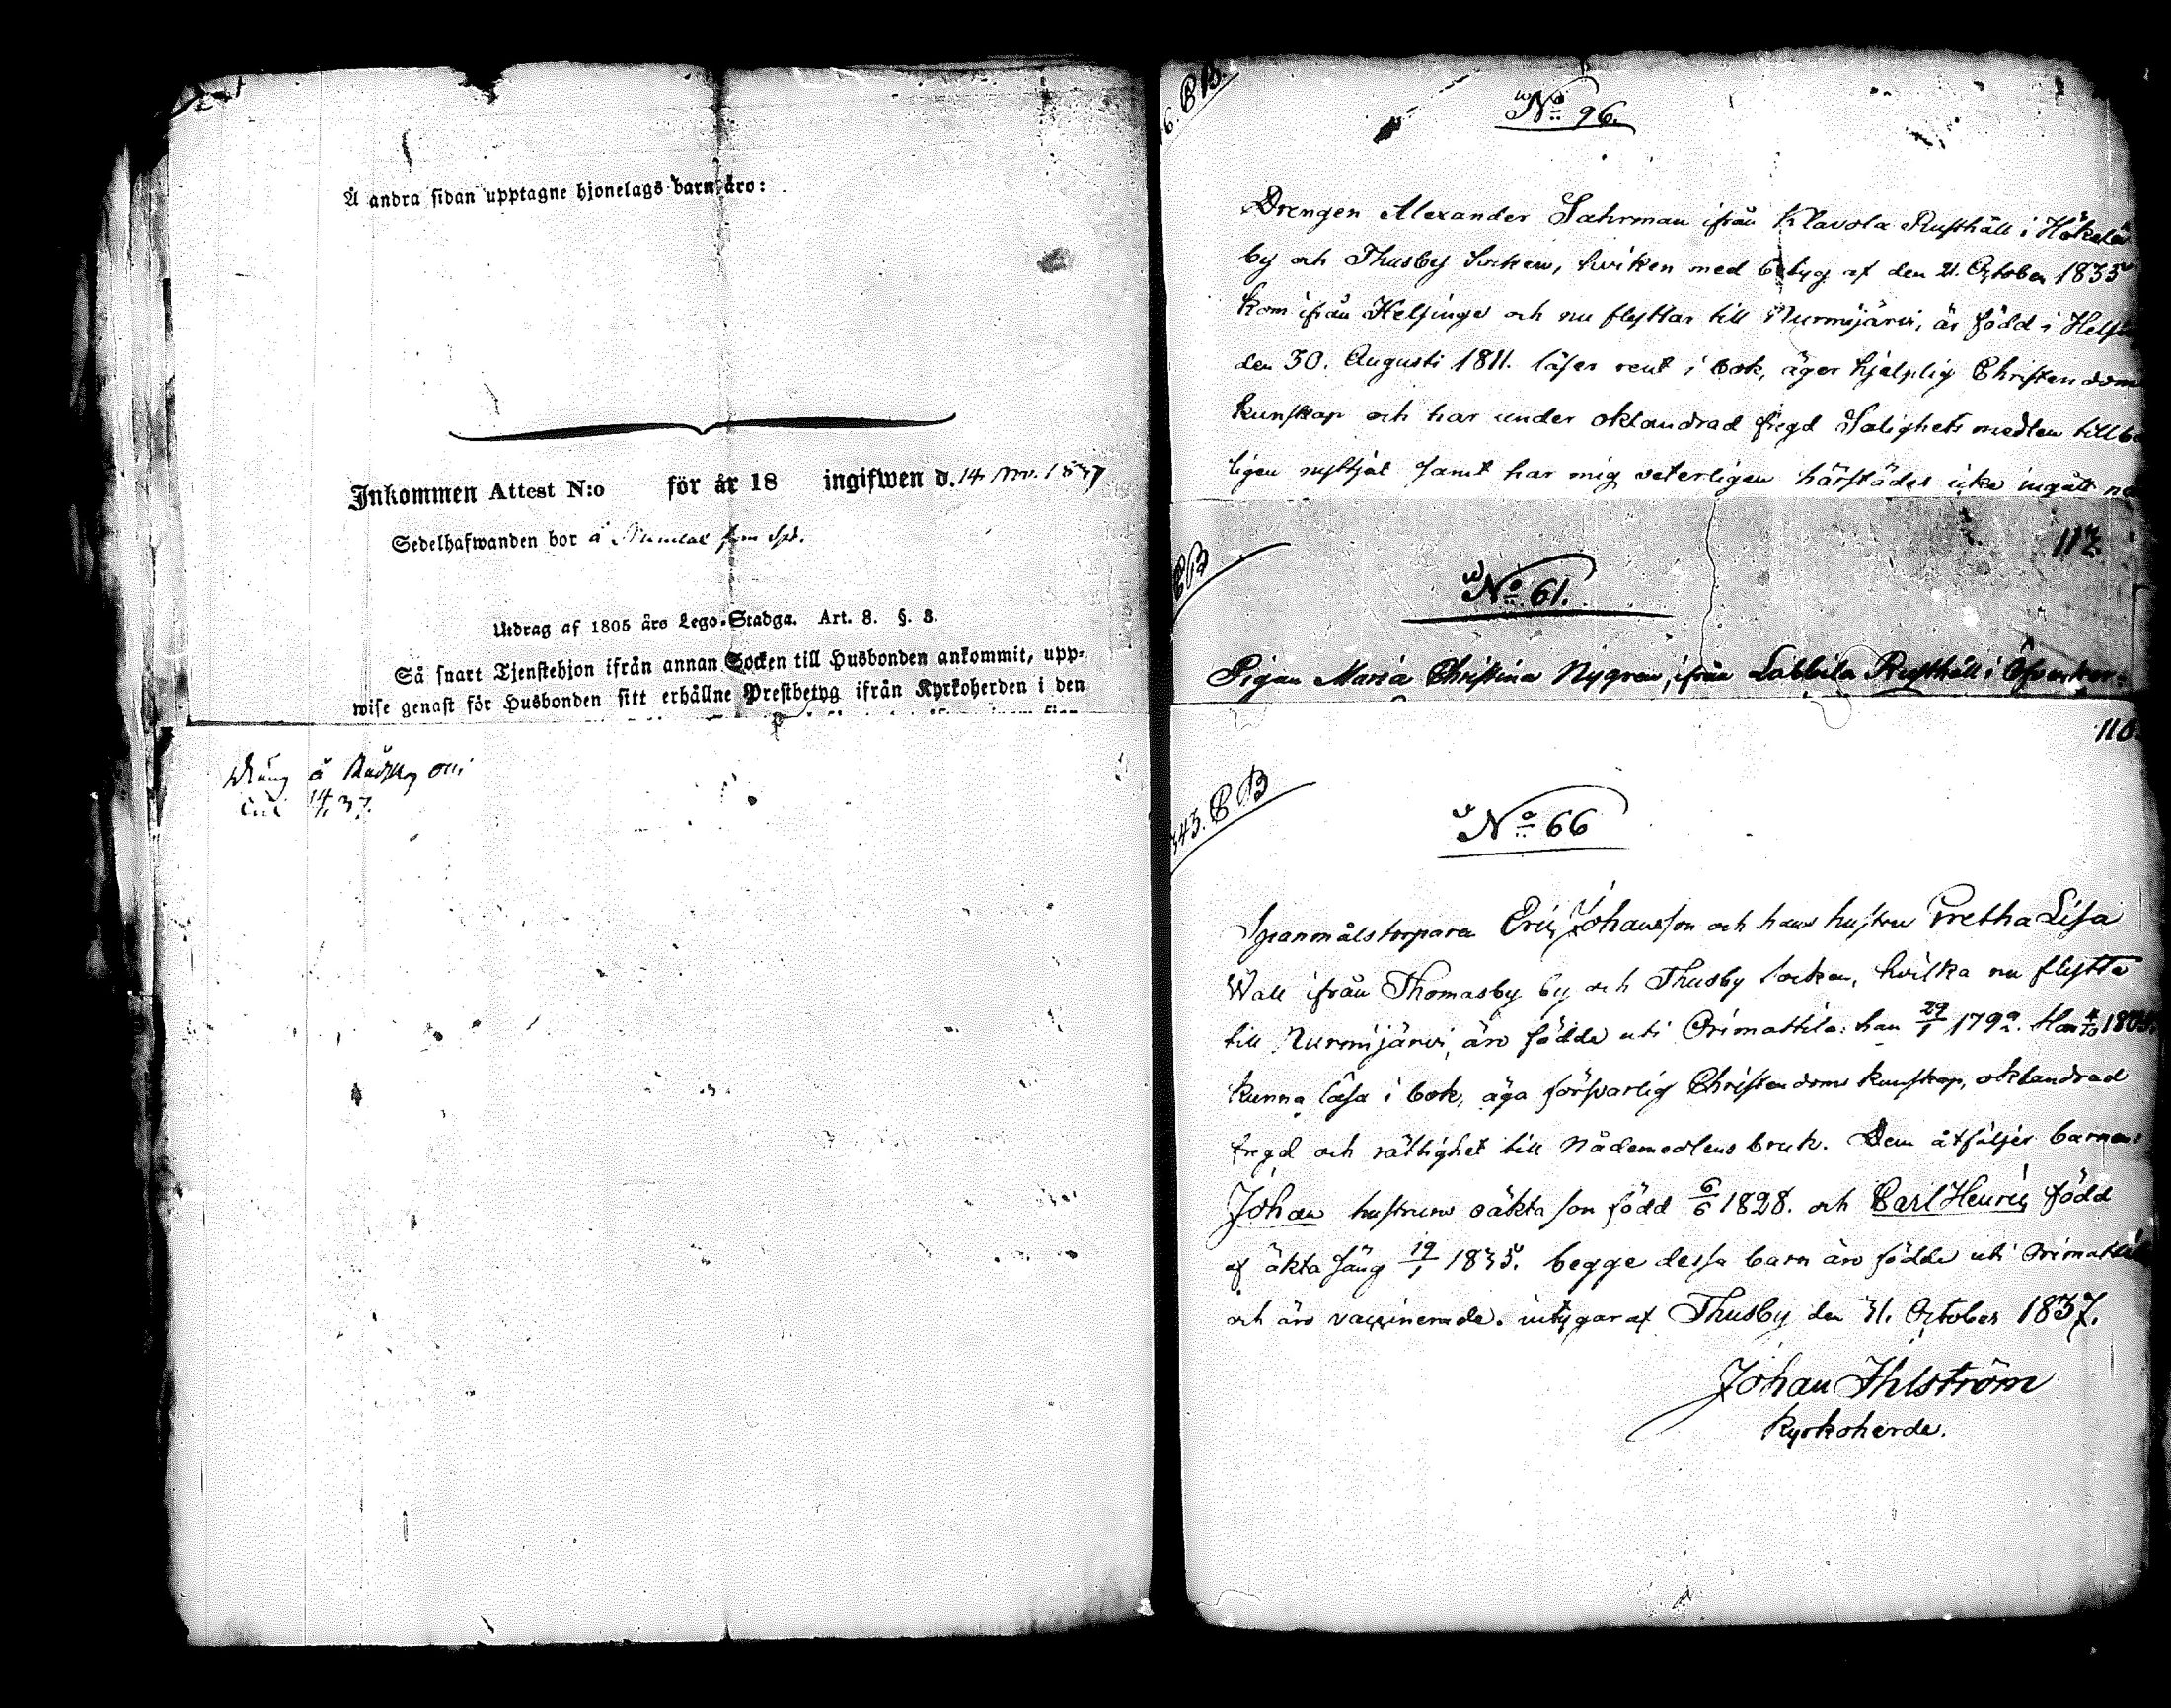 Å andra sidan upptagne hjonelags barn äro:
Inkommen Attest N:o för år 18 ingifwen d. 14 Nov. 1837
Sedelhafwanden bor å
Utdrag af 1805 års Lego-Stadga. Art. 8. §. 3.
Så snart Tjenstehjon ifrån annan Socken till Husbonden ankommit, upp-
wise genast för Husbonden sitt erhållne Prestbetyg ifrån Kyrkoherden i den
å
37.
6. CB.
No 96.
Drengen Alexander Sahrman ifrån Klavola Rusthåll i Hökelä
by och Thusby Socken, hviken med betyg af den 21. October 1835
kom ifrån Helsinge och nu flyttar till Nurmijärvi, är född i Helsin
den 30. Augusti 1811. läser rent i bok, äger hjelplig Christendoms
kunskap och har under oklandrad fregd Salighets medlen tillbö
ligen nyttjat samt har mig veterligen härstädes icke ingått nå
112.
CB
No 61.
Pigan Maria Christina Nygren, ifrån Labbila Rusthåll i Ofvanker-
110.
343. CB
No 66
Spanmålstorparen Eric Johansson och hans hustru Gretha Lisa
Wall ifrån Thomasby by och Thusby socken, hvilka nu flytta
till Nurmijärvi, äro födde uti Orimattila: han 29/1 1799. Hon 4/10 1805.
Kunna läsa i bok, äga försvarlig Christendoms kunskap, oklandrad
fregd och rättighet till Nådemedlens bruk. Dem åtföljer barnen:
Johan hustruns oäkta son född 6/6 1828. och Carl Henric född
af äkta säng 19/1 1835. begge dessa barn äro födde uti Orimattila
och äro vaccinerade. intygar af Thusby den 31. October 1837.
Johan Ihlström
Kyrkoherde.